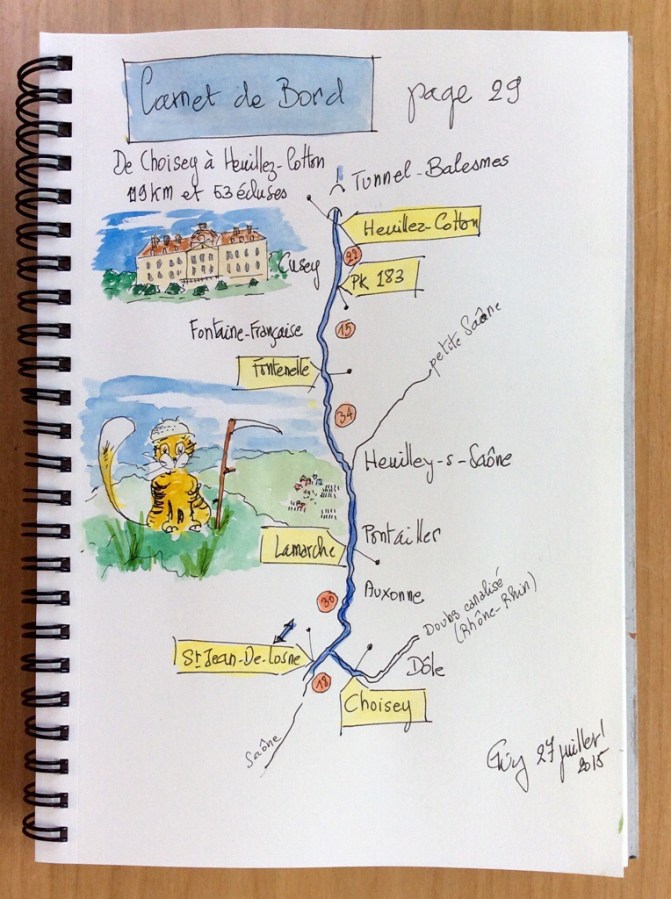 Carnet de Bord
page 29
De Choisey à Heuillez-Cotton
119km et 53 écluses
Tunnel-Balesmes
Heuillez-Cotton
22
Cusey
PK 183
Fontaine-Française
15
petite Saône
Fontenelle
34
Heuilley-s-Saône
Pontailler
Lamarche
Auxonne
30
Doubs canalisé
(Rhône-Rhin)
St Jean-De-Losne
Dôle
18
Choisey
Saône
Guy 27 juillet
2015